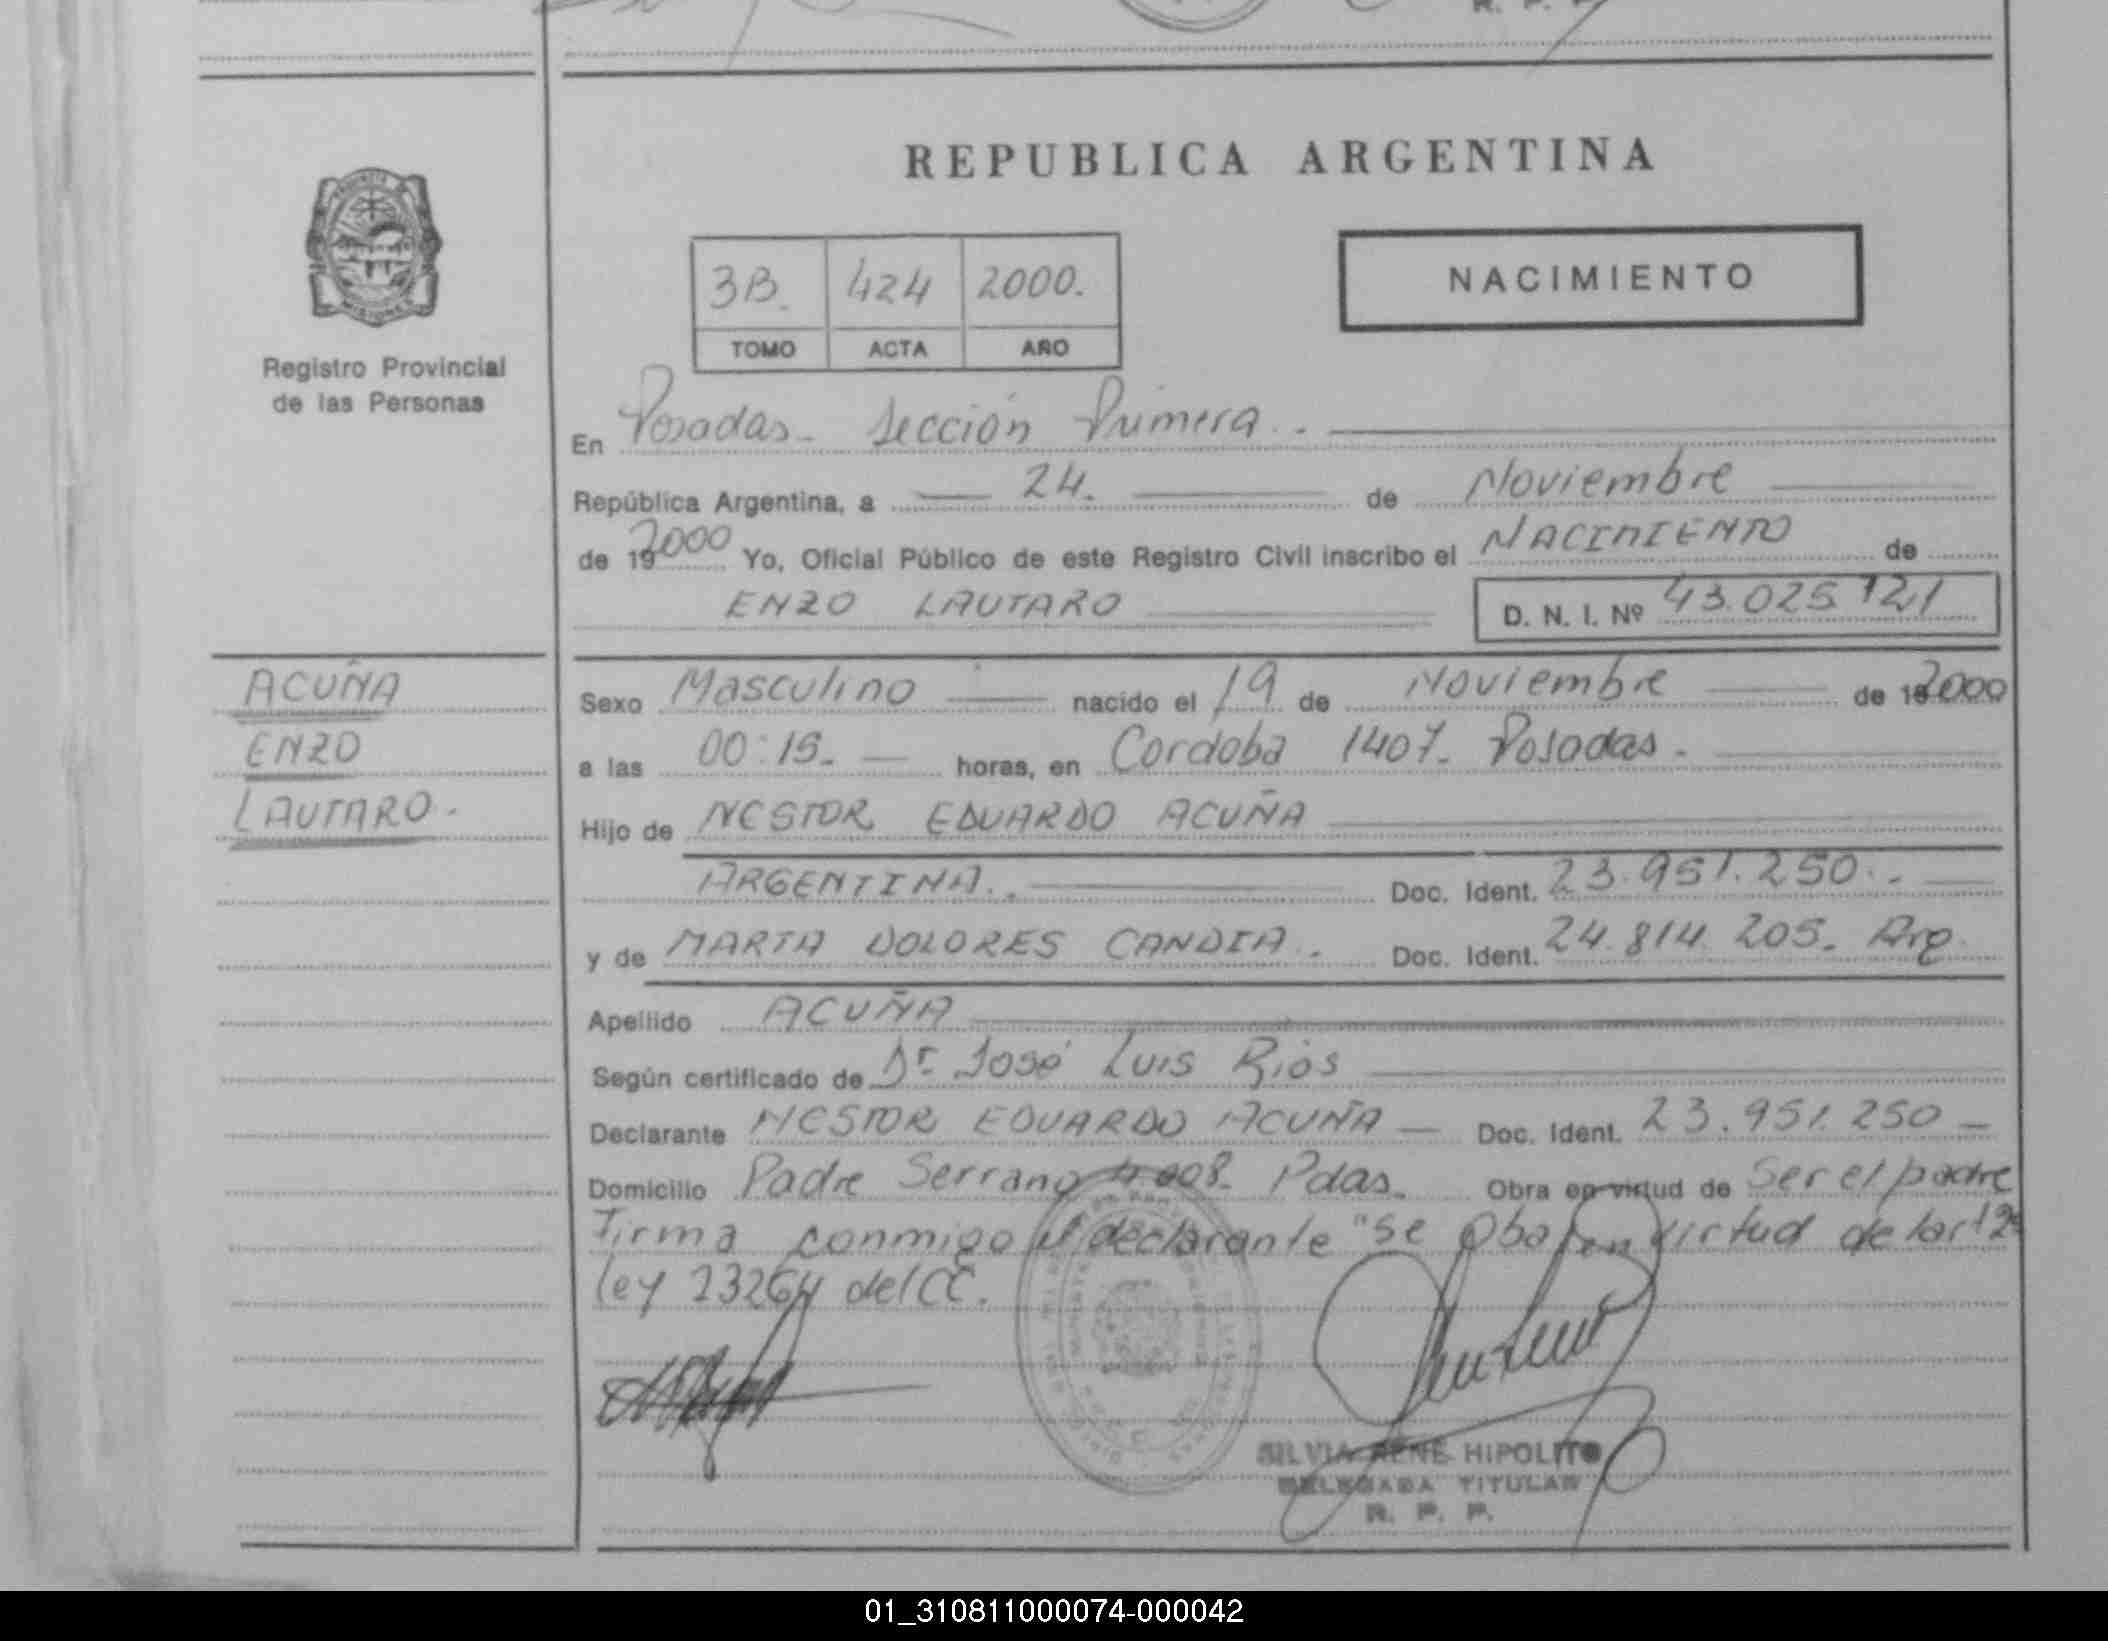 REPUBLICA ARGENTINA
3B. 424 2000.
TOMO ACTA AÑO
NACIMIENTO
Registro Provincial
de las Personas
En Posadas - Sección Primera.-
República Argentina, a 24. de Noviembre
de 192000 Yo, Oficial Público de este Registro Civil inscribo el NACIMIENTO de
ENZO LAUTARO D. N. I. Nº 43.025.121
ACUÑA
ENZO
LAUTARO.-
Sexo Masculino nacido el 19 de Noviembre de 192000
a las 00:15.- horas, en Cordoba 1407. Posadas.-
Hijo de NESTOR EDUARDO ACUÑA
ARGENTINA.- Doc. Ident. 23.951.250.-
y de MARTA DOLORES CANDIA.- Doc. Ident. 24.814.205. Arg.
Apellido ACUÑA
Según certificado de Dr. José Luis Rios
Declarante NESTOR EDUARDO ACUÑA - Doc. Ident. 23.951.250 -
Domicilio Padre Serrano Pdas. Obra en virtud de Ser el padre
Firma conmigo el declarante "Se Oba en virtud de
ley 23264 del CC.
SILVIA RENE HIPOLITO
DELEGADA TITULAR
R. P. P.
01_310811000074-000042